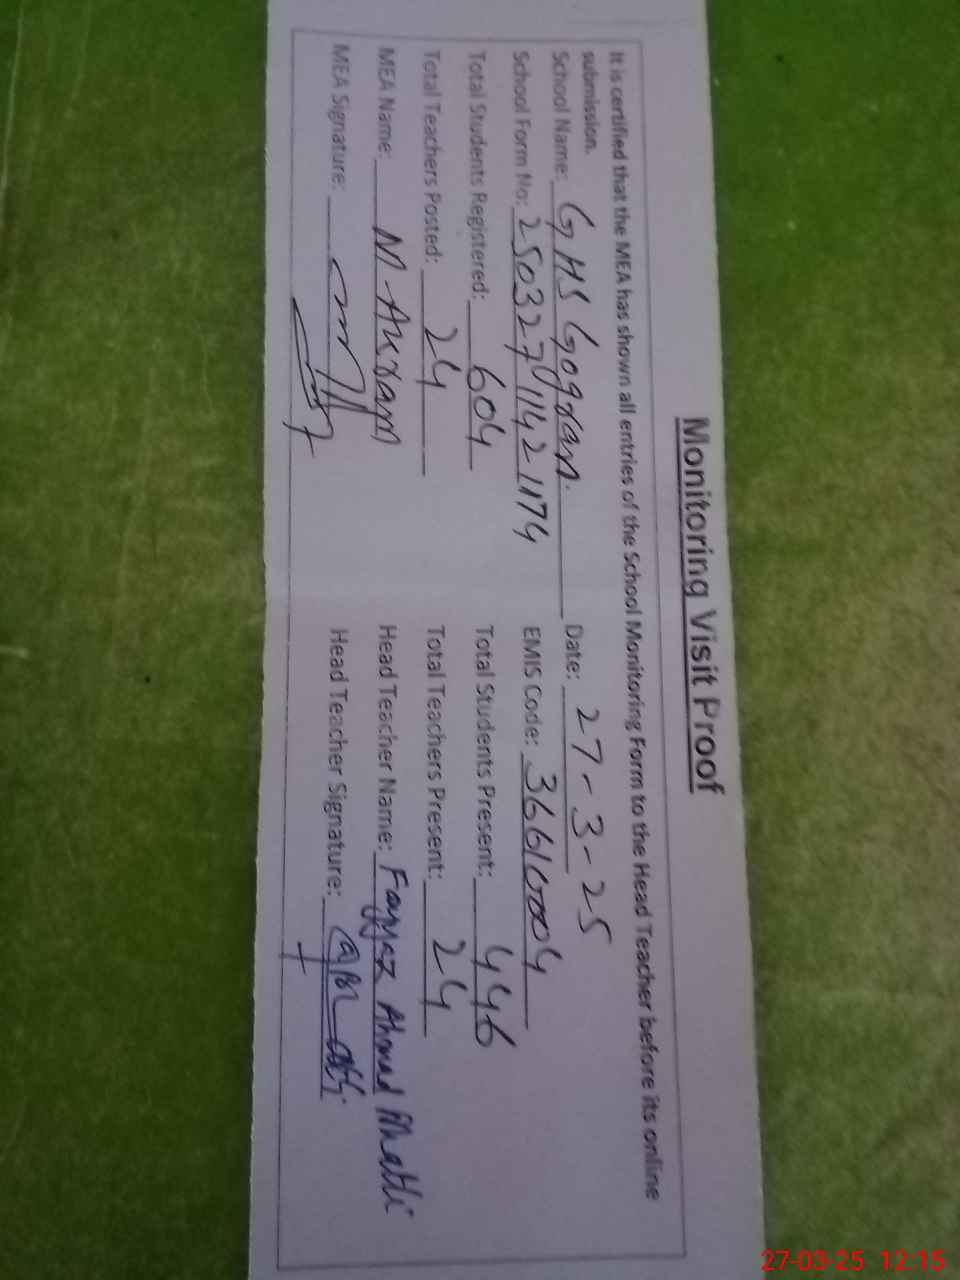 Monitoring Visit Proof
It is certified that the MEA has shown all entries of the School Monitoring Form to the Head Teacher before its online
submission.
School Name: GHS Gogran. Date: 27-3-25
School Form No: EMIS Code: 36610004
Total Students Registered: 604 Total Students Present: 446
Total Teachers Posted: 24 Total Teachers Present: 24
MEA Name: M. Akram Head Teacher Name: Fayyaz Ahmad Bhatti
MEA Signature: Head Teacher Signature:
27-03-25 12:15